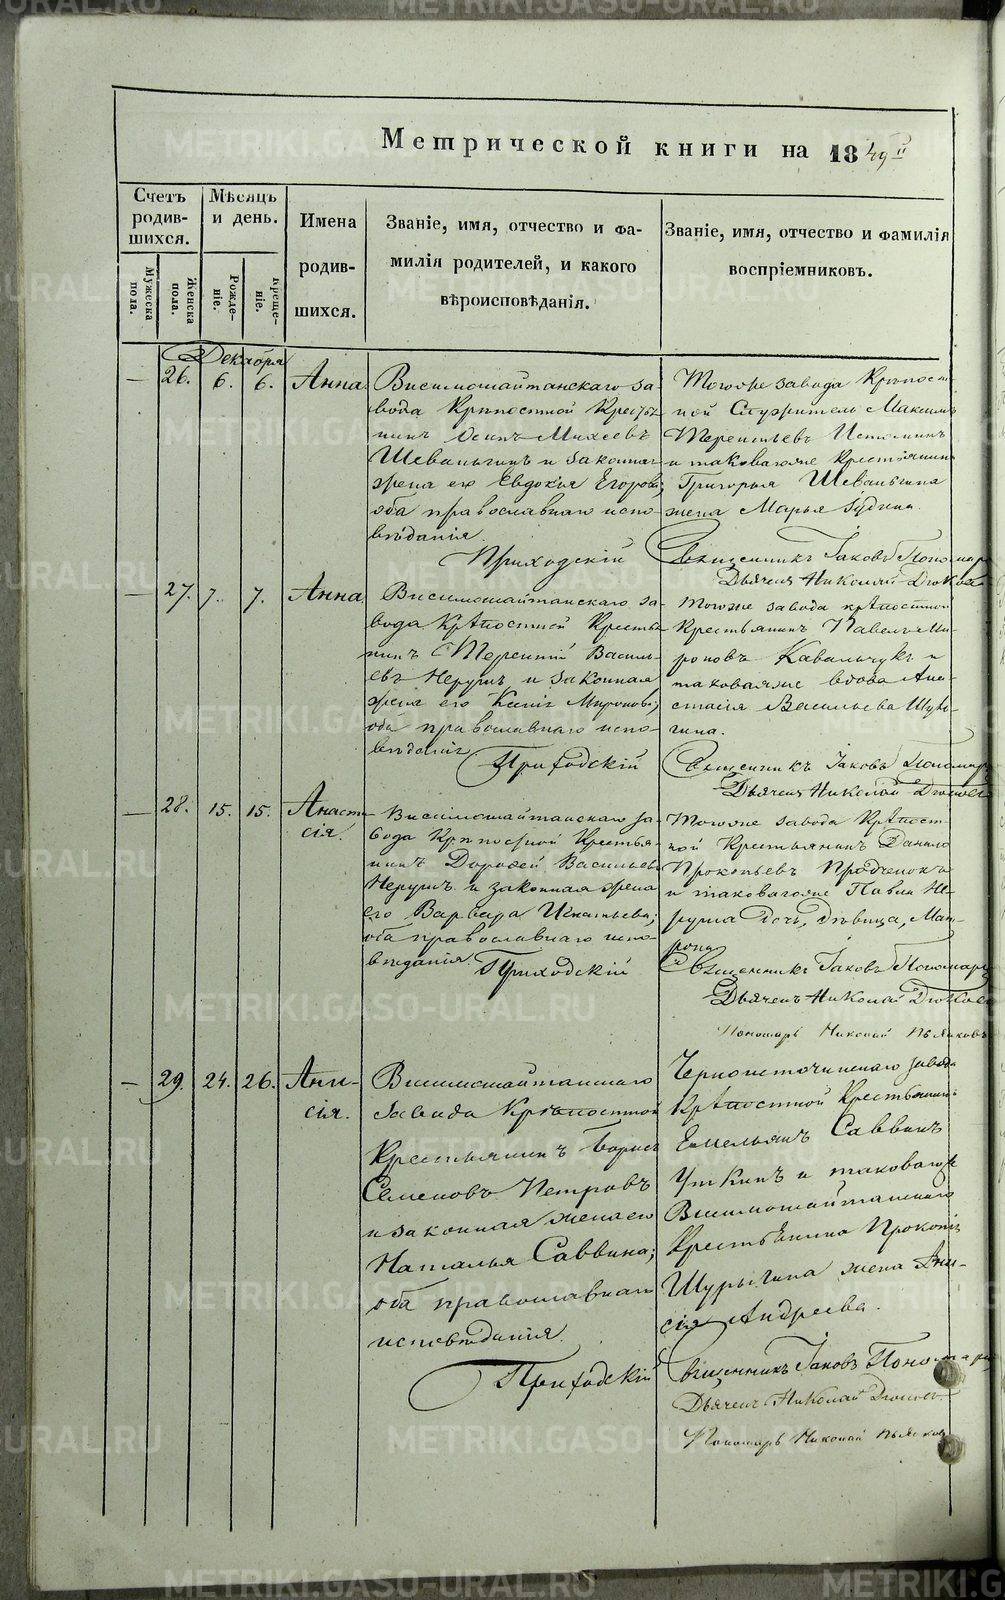 METRIKI.GASO-URAL.RU
Метрической книги на 1849 г
Счетъ родив-шихся.
Мѣсяцъ и день.
Имена родив-шихся.
Званіе, имя, отчество и фа-
милія родителей, и какого
вѣроисповѣданія.
Званіе, имя, отчество и фамилія
воспріемниковъ.
Мужеска пола.
Женска пола.
Рожде-ніе.
Креще-ніе.
Декабря
— 26. 6. 6. Анна
Висимошайтанскаго за-
вода Крѣпостной Кресть-
нинъ Осипъ Михеевъ
Шеваньгинъ и законная
жена его Евдокія Егорова;
оба православнаго испо-
вѣданія.
Тогоже завода Крѣпост-
ной Служитель Максимъ
Терентьевъ Истоминъ
и таковагоже крестьянина
Григорья Шеваньгина
жена Марья
Приходскій Священникъ Іаковъ Пономар
Дьячекъ Николай
— 27. 7. 7. Анна
Висимошайтанскаго за-
вода Крѣпостной Кресть-
нинъ Терентій Василь-
евъ Нерушъ и законная
жена его Ксенія Миронова;
оба православнаго испо-
вѣданія
Тогоже завода крѣпостной
Крестьянинъ Павелъ Ми-
роновъ Ковальчукъ и
таковаяже вдова Ана-
стасія Васильева Шуль-
гина.
Приходскій Священникъ Іаковъ Пономар
Дьячекъ Николай
— 28. 15. 15. Анаста-
сія.
Висимошайтанскаго за-
вода Крѣпостной Крестья-
нинъ Дорофей Васильевъ
Нерушъ и законная жена
его Варвара Игнатьева;
оба православнаго испо-
вѣданія.
Тогоже завода Крѣпост-
ной Крестьянинъ Данило
Прокопьевъ
и таковагоже Павла Не-
руша дочь, дѣвица, Мат-
рона
Приходскій Священникъ Іаковъ Пономар
Дьячекъ Николай
Пономарь Николай
— 29. 24. 26. Ани-
сія.
Висимошайтанскаго
Завода Крѣпостной
Крестьянинъ Борисъ
Семеновъ Петровъ
и законная жена его
Наталья Саввина;
оба православнаго
исповѣданія.
Черноисточинскаго завода
Крѣпостной Крестьянинъ
Емельянъ Саввинъ
Уткинъ и таковагоже
Висимошайтанскаго
Крестьянина Прокопія
Шурыгина жена Ани-
сія Андреева.
Приходскій Священникъ Іаковъ Пономар
Дьячекъ Николай
Пономарь Николай